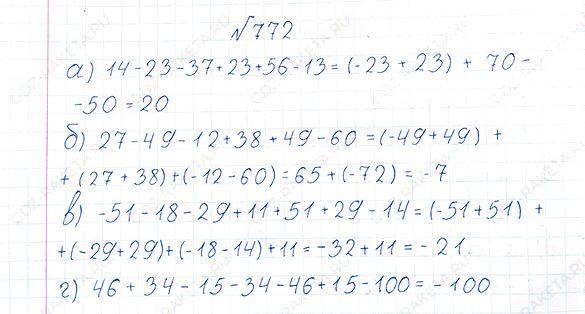 №772
а) 14-23-37+23+56-13=(-23+23) + 70-
-50=20
б) 27-49-12+38+49-60=(-49+49) +
+(27+38)+(-12-60)=65+(-72)=-7
в) -51-18-29+11+51+29-14=(-51+51) +
+(-29+29)+(-18-14)+11=-32+11=-21.
г) 46+34-15-34-46+15-100=-100